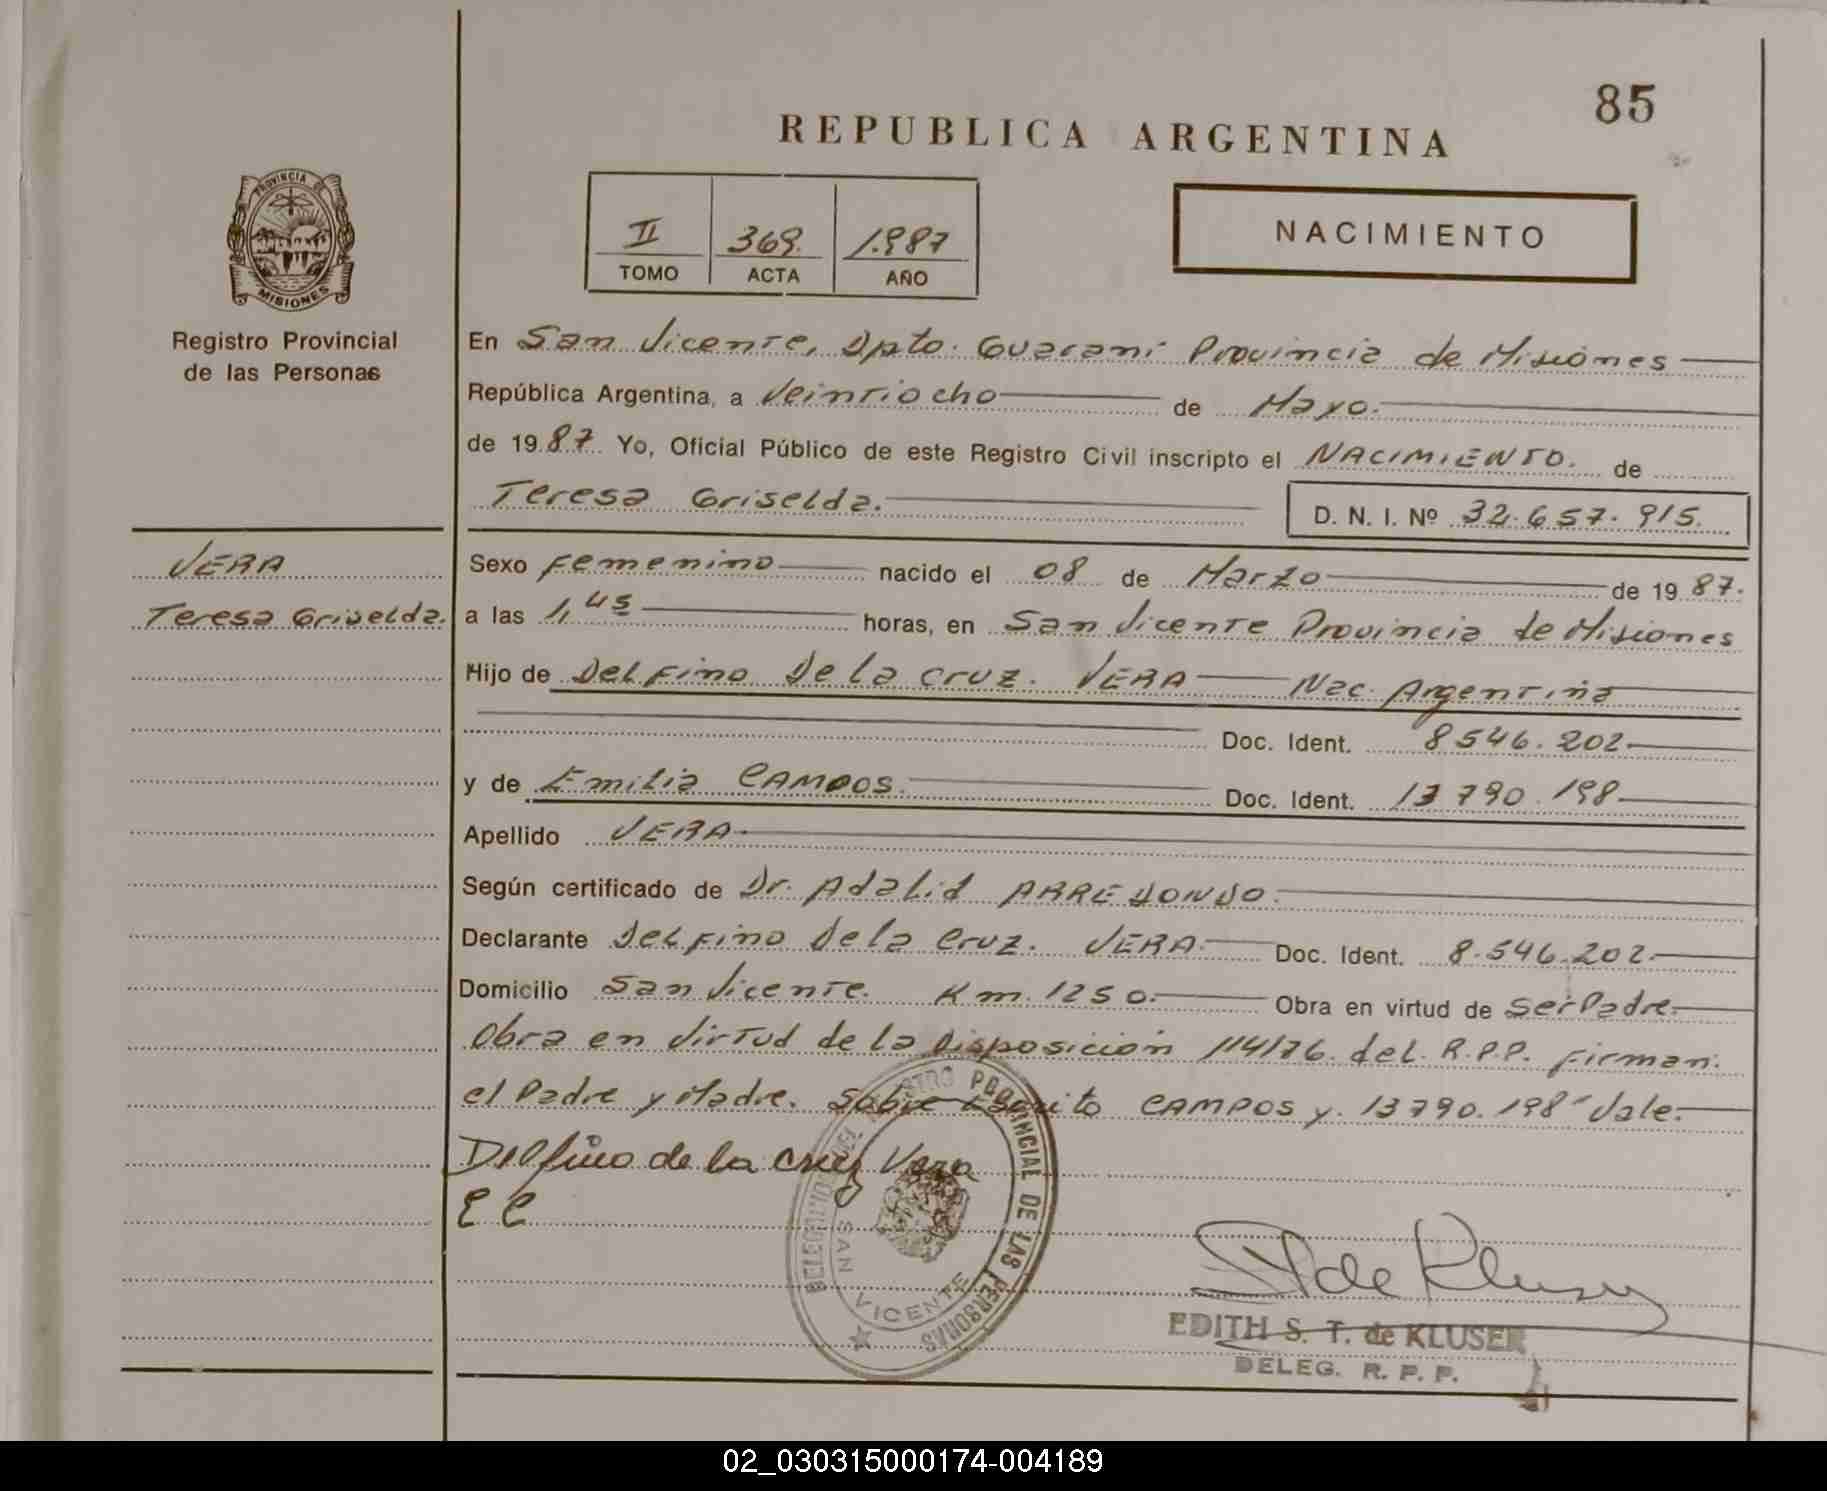 85
REPUBLICA ARGENTINA
PROVINCIA DE
MISIONES
Registro Provincial
de las Personas
II 369. 1.987
TOMO ACTA AÑO
NACIMIENTO
En San Vicente, Dpto. Guarani Provincia de Misiones
República Argentina, a Veintiocho de Mayo.
de 1987. Yo, Oficial Público de este Registro Civil inscripto el NACIMIENTO. de
Teresa Griselda.
D. N. I. Nº 32.657.915.
VERA
Teresa Griselda.
Sexo Femenino nacido el 08 de Marzo de 1987.
a las 1,45 horas, en San Vicente Provincia de Misiones
Hijo de Delfino De la Cruz. VERA Nac. Argentina
Doc. Ident. 8546.202
y de Emilia CAMPOS. Doc. Ident. 13790.198
Apellido VERA
Según certificado de Dr. Adalid ARREDONDO.
Declarante Delfino De la Cruz. VERA. Doc. Ident. 8.546.202.
Domicilio San Vicente. Km. 1250. Obra en virtud de ser Padre.
Obra en virtud de la Disposición 114/76. del. R.P.P. Firman.
el Padre y Madre. Sobre Escrito CAMPOS y. 13790.198" Vale.
Delfino de la Cruz Vera
E C
REGISTRO PROVINCIAL DE LAS PERSONAS
SAN VICENTE
de Kluser
EDITH S. T. de KLUSER
DELEG. R. P. P.
02_030315000174-004189